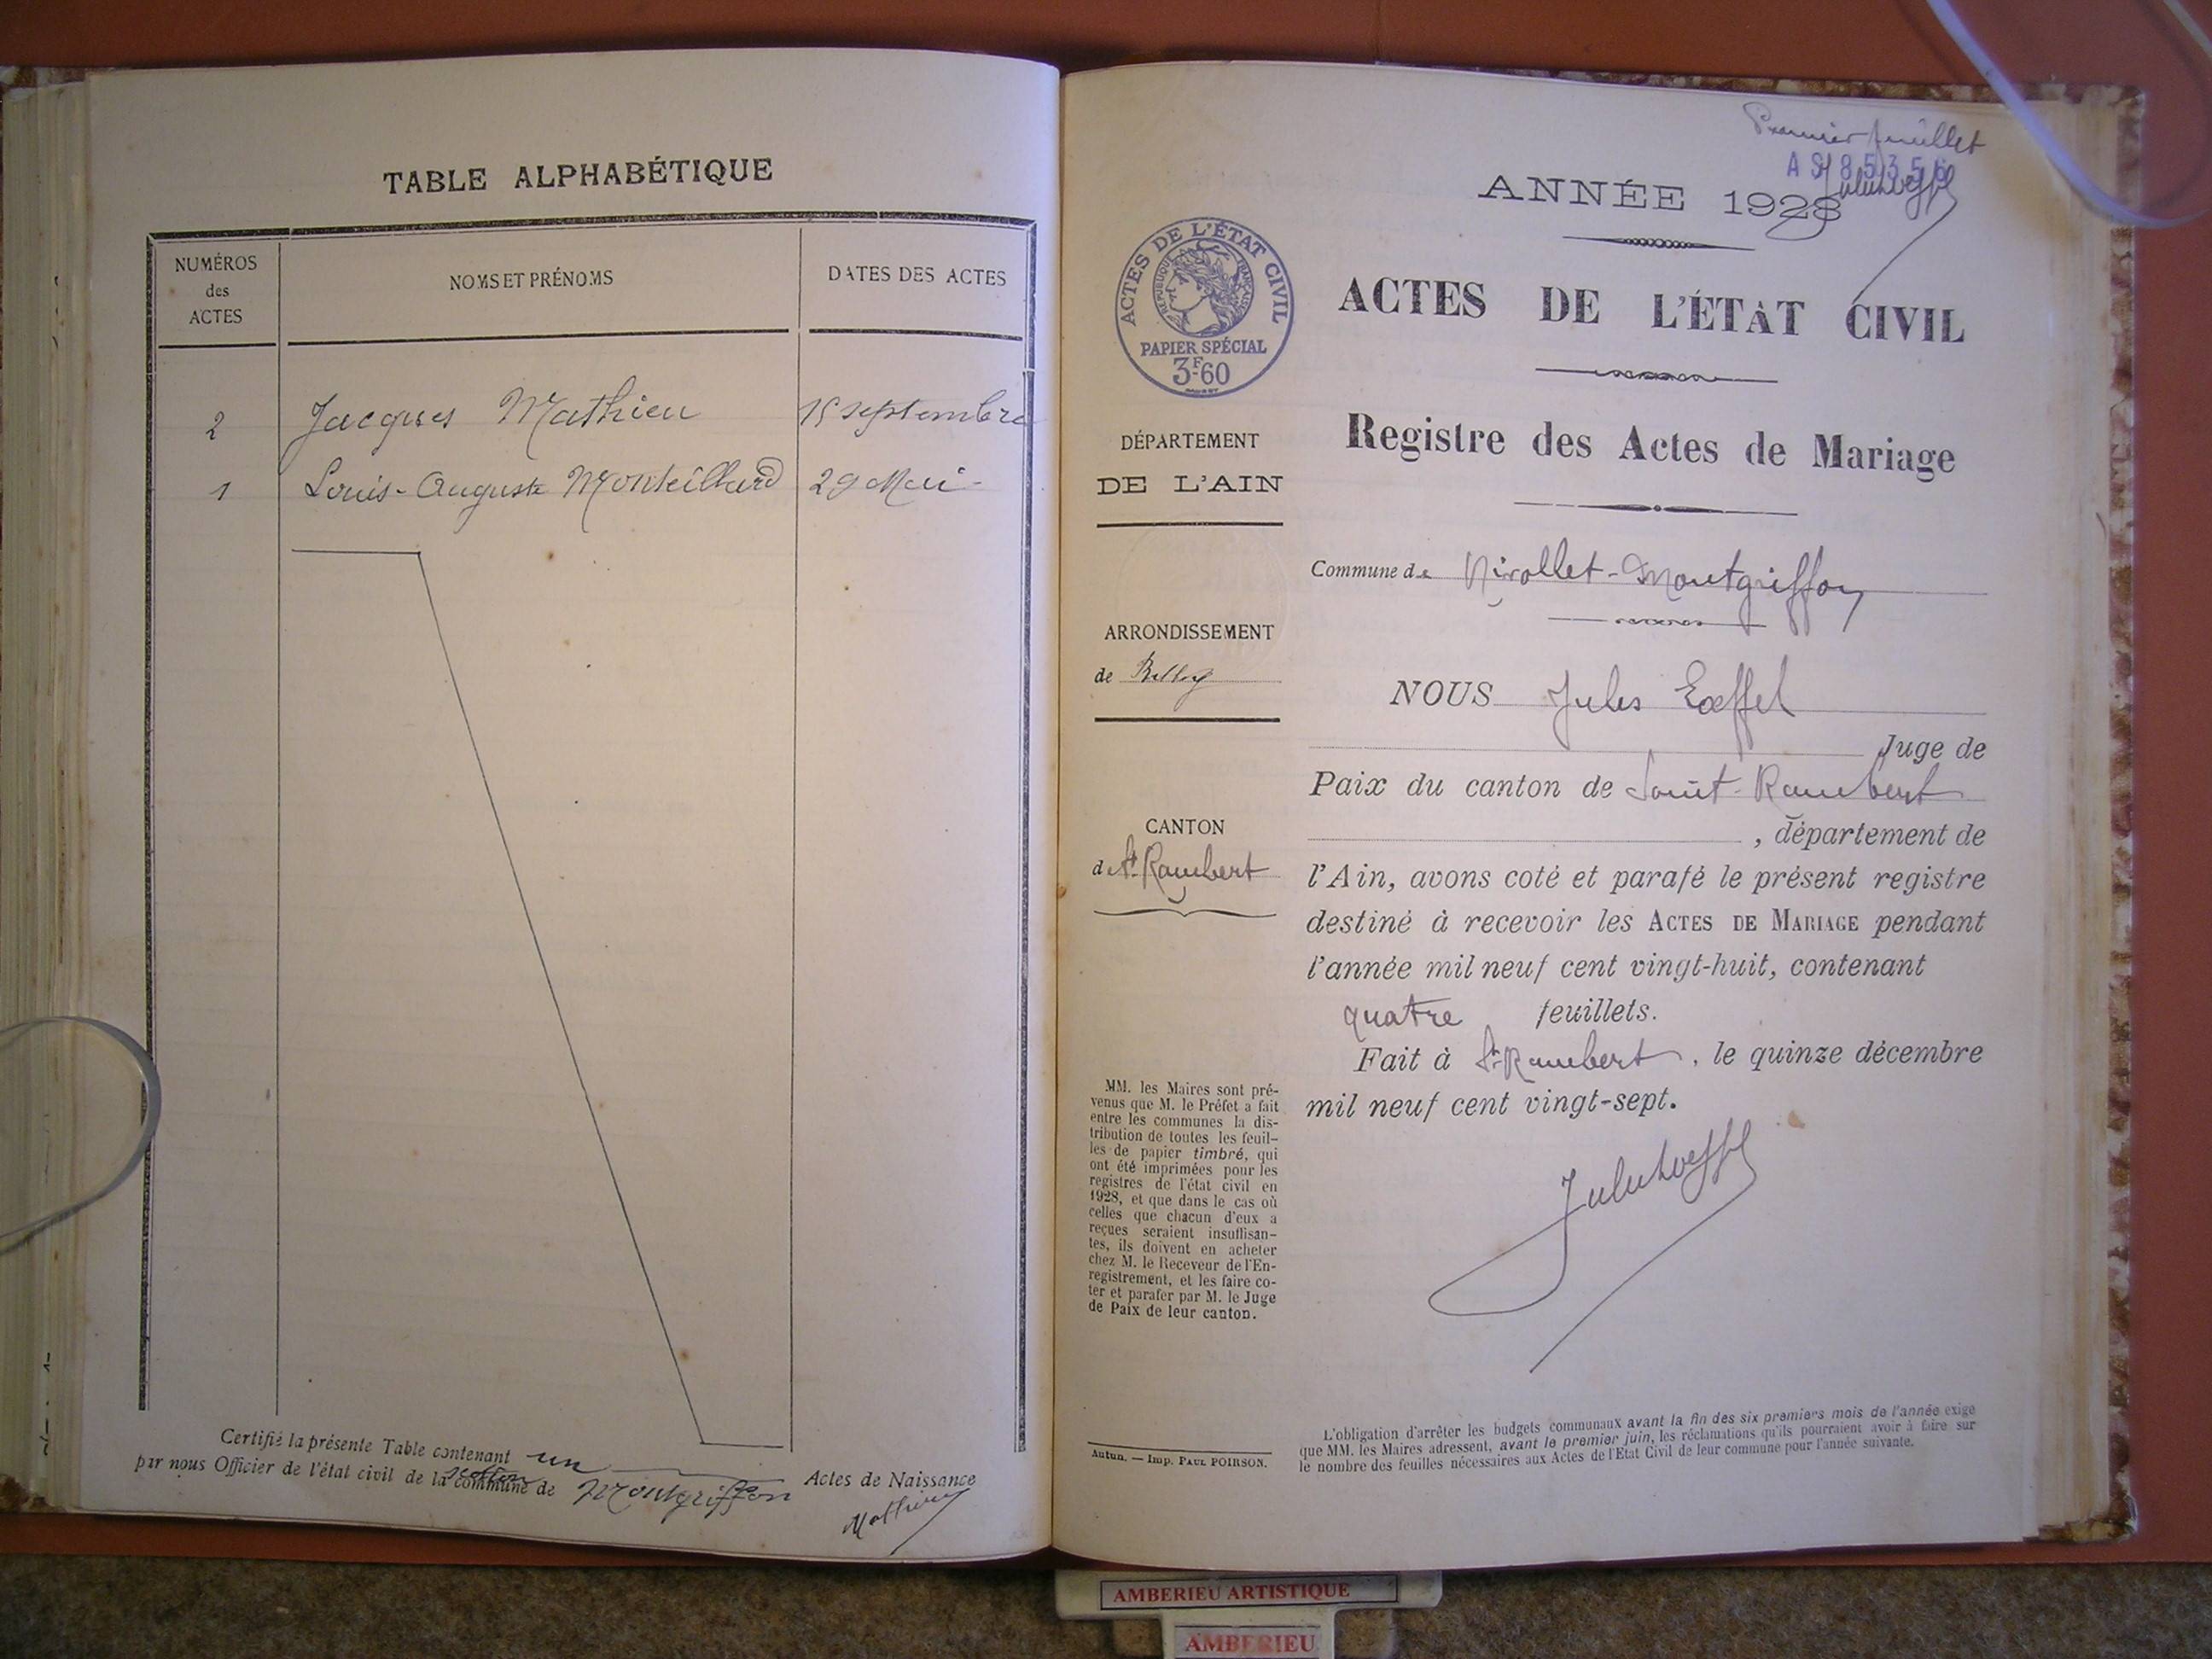 TABLE ALPHABÉTIQUE
NUMÉROS des ACTES
NOMS ET PRÉNOMS
DATES DES ACTES
2 Jacques Mathieu 15 septembre
1 Louis-Auguste Monteillard 29 Mai
Certifié la présente Table contenant un Actes de Naissance
par nous Officier de l'état civil de la section commune de Montgriffon
Mathieu
Premier feuillet
ANNÉE 1928
ACTES DE L'ÉTAT CIVIL
RÉPUBLIQUE FRANÇAISE
PAPIER SPÉCIAL
3F60
ACTES DE L'ÉTAT CIVIL
Registre des Actes de Mariage
DÉPARTEMENT
DE L'AIN
ARRONDISSEMENT
de Belley
CANTON
de St Rambert
MM. les Maires sont pré-
venus que M. le Préfet a fait
entre les communes la dis-
tribution de toutes les feuil-
les de papier timbré, qui
ont été imprimées pour les
registres de l'état civil en
1928, et que dans le cas où
celles que chacun d'eux a
reçues seraient insuffisan-
tes, ils doivent en acheter
chez M. le Receveur de l'En-
registrement, et les faire co-
ter et parafer par M. le Juge
de Paix de leur canton.
Autun. — Imp. PAUL POIRSON.
Commune de Nivollet-Montgriffon
NOUS Jules Lœffel
Juge de
Paix du canton de Saint-Rambert
, département de
l'Ain, avons coté et parafé le présent registre
destiné à recevoir les ACTES DE MARIAGE pendant
l'année mil neuf cent vingt-huit, contenant
quatre feuillets.
Fait à St-Rambert, le quinze décembre
mil neuf cent vingt-sept.
L'obligation d'arrêter les budgets communaux avant la fin des six premiers mois de l'année exige
que MM. les Maires adressent, avant le premier juin, les réclamations qu'ils pourraient avoir à faire sur
le nombre des feuilles nécessaires aux Actes de l'Etat Civil de leur commune pour l'année suivante.
AMBERIEU ARTISTIQUE
AMBERIEU